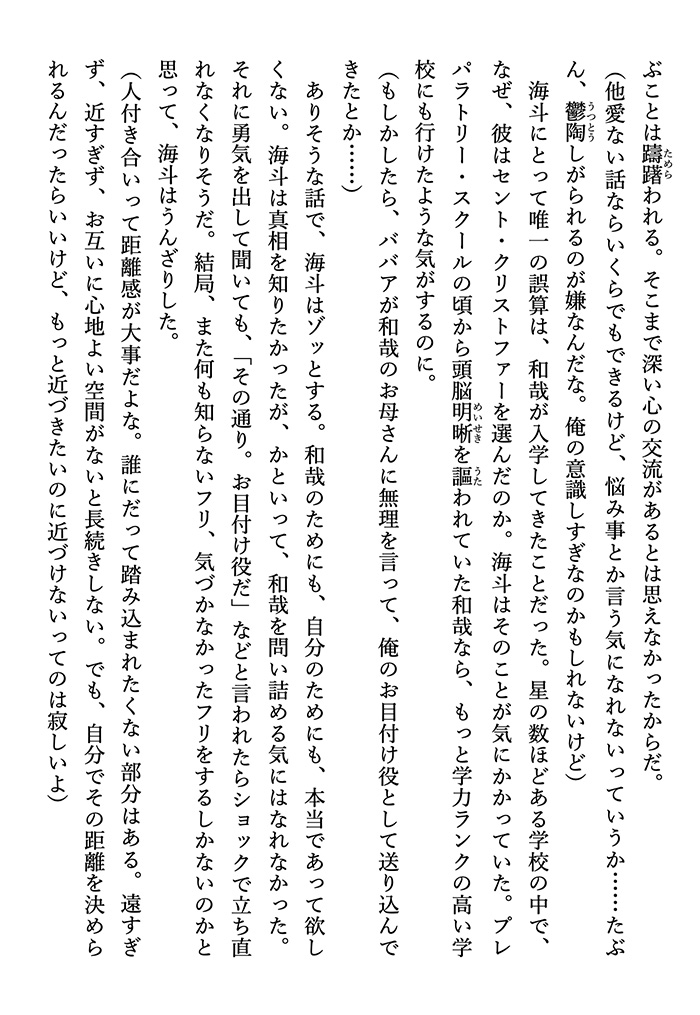 ぶことは躊躇われる。そこまで深い心の交流があるとは思えなかったからだ。
（他愛ない話ならいくらでもできるけど、悩み事とか言う気になれないっていうか……たぶ
ん、鬱陶しがられるのが嫌なんだな。俺の意識しすぎなのかもしれないけど）
　海斗にとって唯一の誤算は、和哉が入学してきたことだった。星の数ほどある学校の中で、
なぜ、彼はセント・クリストファーを選んだのか。海斗はそのことが気にかかっていた。プレ
パラトリー・スクールの頃から頭脳明晰を謳われていた和哉なら、もっと学力ランクの高い学
校にも行けたような気がするのに。
（もしかしたら、ババアが和哉のお母さんに無理を言って、俺のお目付け役として送り込んで
きたとか……）
　ありそうな話で、海斗はゾッとする。和哉のためにも、自分のためにも、本当であって欲し
くない。海斗は真相を知りたかったが、かといって、和哉を問い詰める気にはなれなかった。
それに勇気を出して聞いても、「その通り。お目付け役だ」などと言われたらショックで立ち直
れなくなりそうだ。結局、また何も知らないフリ、気づかなかったフリをするしかないのかと
思って、海斗はうんざりした。
（人付き合いって距離感が大事だよな。誰にだって踏み込まれたくない部分はある。遠すぎ
ず、近すぎず、お互いに心地よい空間がないと長続きしない。でも、自分でその距離を決めら
れるんだったらいいけど、もっと近づきたいのに近づけないってのは寂しいよ）